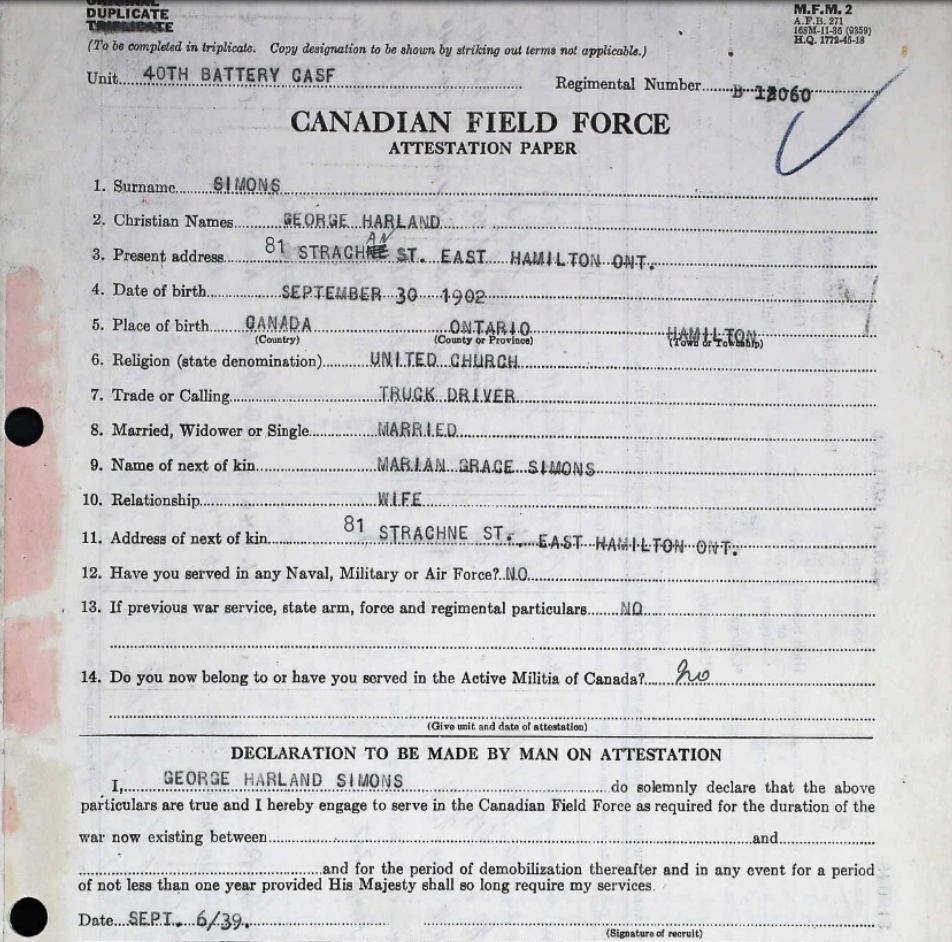 ORIGINAL
DUPLICATE
TRIPLICATE
M.F.M. 2
A.F.B. 271
168M-11-36 (9359)
H.Q. 1772-45-18
(To be completed in triplicate. Copy designation to be shown by striking out terms not applicable.)
Unit 40TH BATTERY CASF Regimental Number B 12060
CANADIAN FIELD FORCE
ATTESTATION PAPER
1. Surname SIMONS
2. Christian Names GEORGE HARLAND
3. Present address 81 STRACHAN ST. EAST HAMILTON ONT.
4. Date of birth SEPTEMBER 30 1902
5. Place of birth CANADA ONTARIO HAMILTON
(Country) (County or Province) (Town or Township)
6. Religion (state denomination) UNITED CHURCH
7. Trade or Calling TRUCK DRIVER
8. Married, Widower or Single MARRIED
9. Name of next of kin MARIAN GRACE SIMONS
10. Relationship WIFE
11. Address of next of kin 81 STRACHNE ST., EAST HAMILTON ONT.
12. Have you served in any Naval, Military or Air Force? NO
13. If previous war service, state arm, force and regimental particulars NO
14. Do you now belong to or have you served in the Active Militia of Canada? no
(Give unit and date of attestation)
DECLARATION TO BE MADE BY MAN ON ATTESTATION
I, GEORGE HARLAND SIMONS do solemnly declare that the above
particulars are true and I hereby engage to serve in the Canadian Field Force as required for the duration of the
war now existing between and
and for the period of demobilization thereafter and in any event for a period
of not less than one year provided His Majesty shall so long require my services.
Date SEPT. 6/39.
(Signature of recruit)